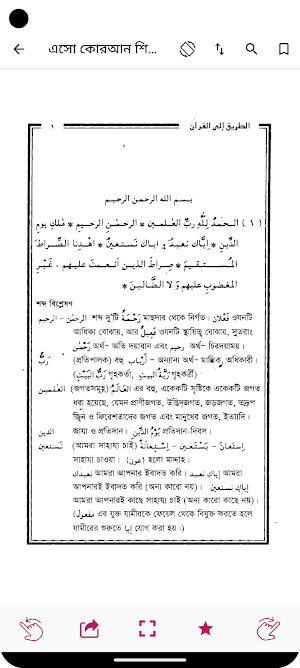 এসো কোরআন শি...
١ الطريق إلى القرآن
بسم الله الرحمن الرحيم
( ١ ) الحمدُ لِلّٰهِ ربِّ العٰلمين * الرحمٰنِ الرحيمِ * مٰلكِ يومِ
الدِّينِ * إيَّاك نعبدُ و إياك نستعينُ * اهدِنا الصِّراطَ
المُستقيمَ * صِراطَ الذين أنعمتَ عليهم ، غَيْرِ
المغضوبِ عليهم وَ لا الضَّالينَ *
শব্দ বিশ্লেষণ
الرحمٰن - الرحيم শব্দ দু'টি رَحْمَةٌ মাছদার থেকে নির্গত। فَعْلَان ওযনটি
আধিক্য বোঝায়, আর فَعِيلٌ ওযনটি স্থায়িত্ব বোঝায়, সুতরাং
رَحْمٰن অর্থ- অতি দয়াবান এবং رحيم অর্থ- চিরদয়াময়।
رَبٌّ (প্রতিপালক) বহু أَرْبَاب – অন্যান্য অর্থ- মালিক, অধিকারী।
(رَبُّ الْبَيْتِ গৃহকর্তা, رَبَّةُ الْبَيْتِ গৃহকর্ত্রী)
العٰلمين (জগতসমূহ) العَالَمُ এর বহু, একেকটি সৃষ্টিকে একেকটি জগত
ধরা হয়েছে, যেমন প্রাণীজগত, উদ্ভিদজগত, জড়জগত, তদ্রূপ
জ্বিন ও ফিরেশতাদের জগত এবং মানুষের জগত, ইত্যাদি।
الدين জাযা ও প্রতিদান। يَوْمُ الدِّيْنِ প্রতিদান-দিবস।
نستعين (আমরা সাহায্য চাই) اِسْتِعَانَةٌ – يَسْتَعِيْنُ – اِسْتَعَانَ
সাহায্য চাওয়া। (عون) হলো মাদ্দাহ।
نعبدك আমরা আপনার ইবাদত করি। إياك نعبد আমরা
আপনারই ইবাদত করি (অন্য কারো নয়)। إياك نستعين
আমরা আপনারই কাছে সাহায্য চাই (অন্য কারো কাছে নয়)।
(مفعول এর যুক্ত যামীরকে ফেয়েল থেকে বিযুক্ত করতে হলে
যামীরের শুরুতে إيا যোগ করা হয়।)